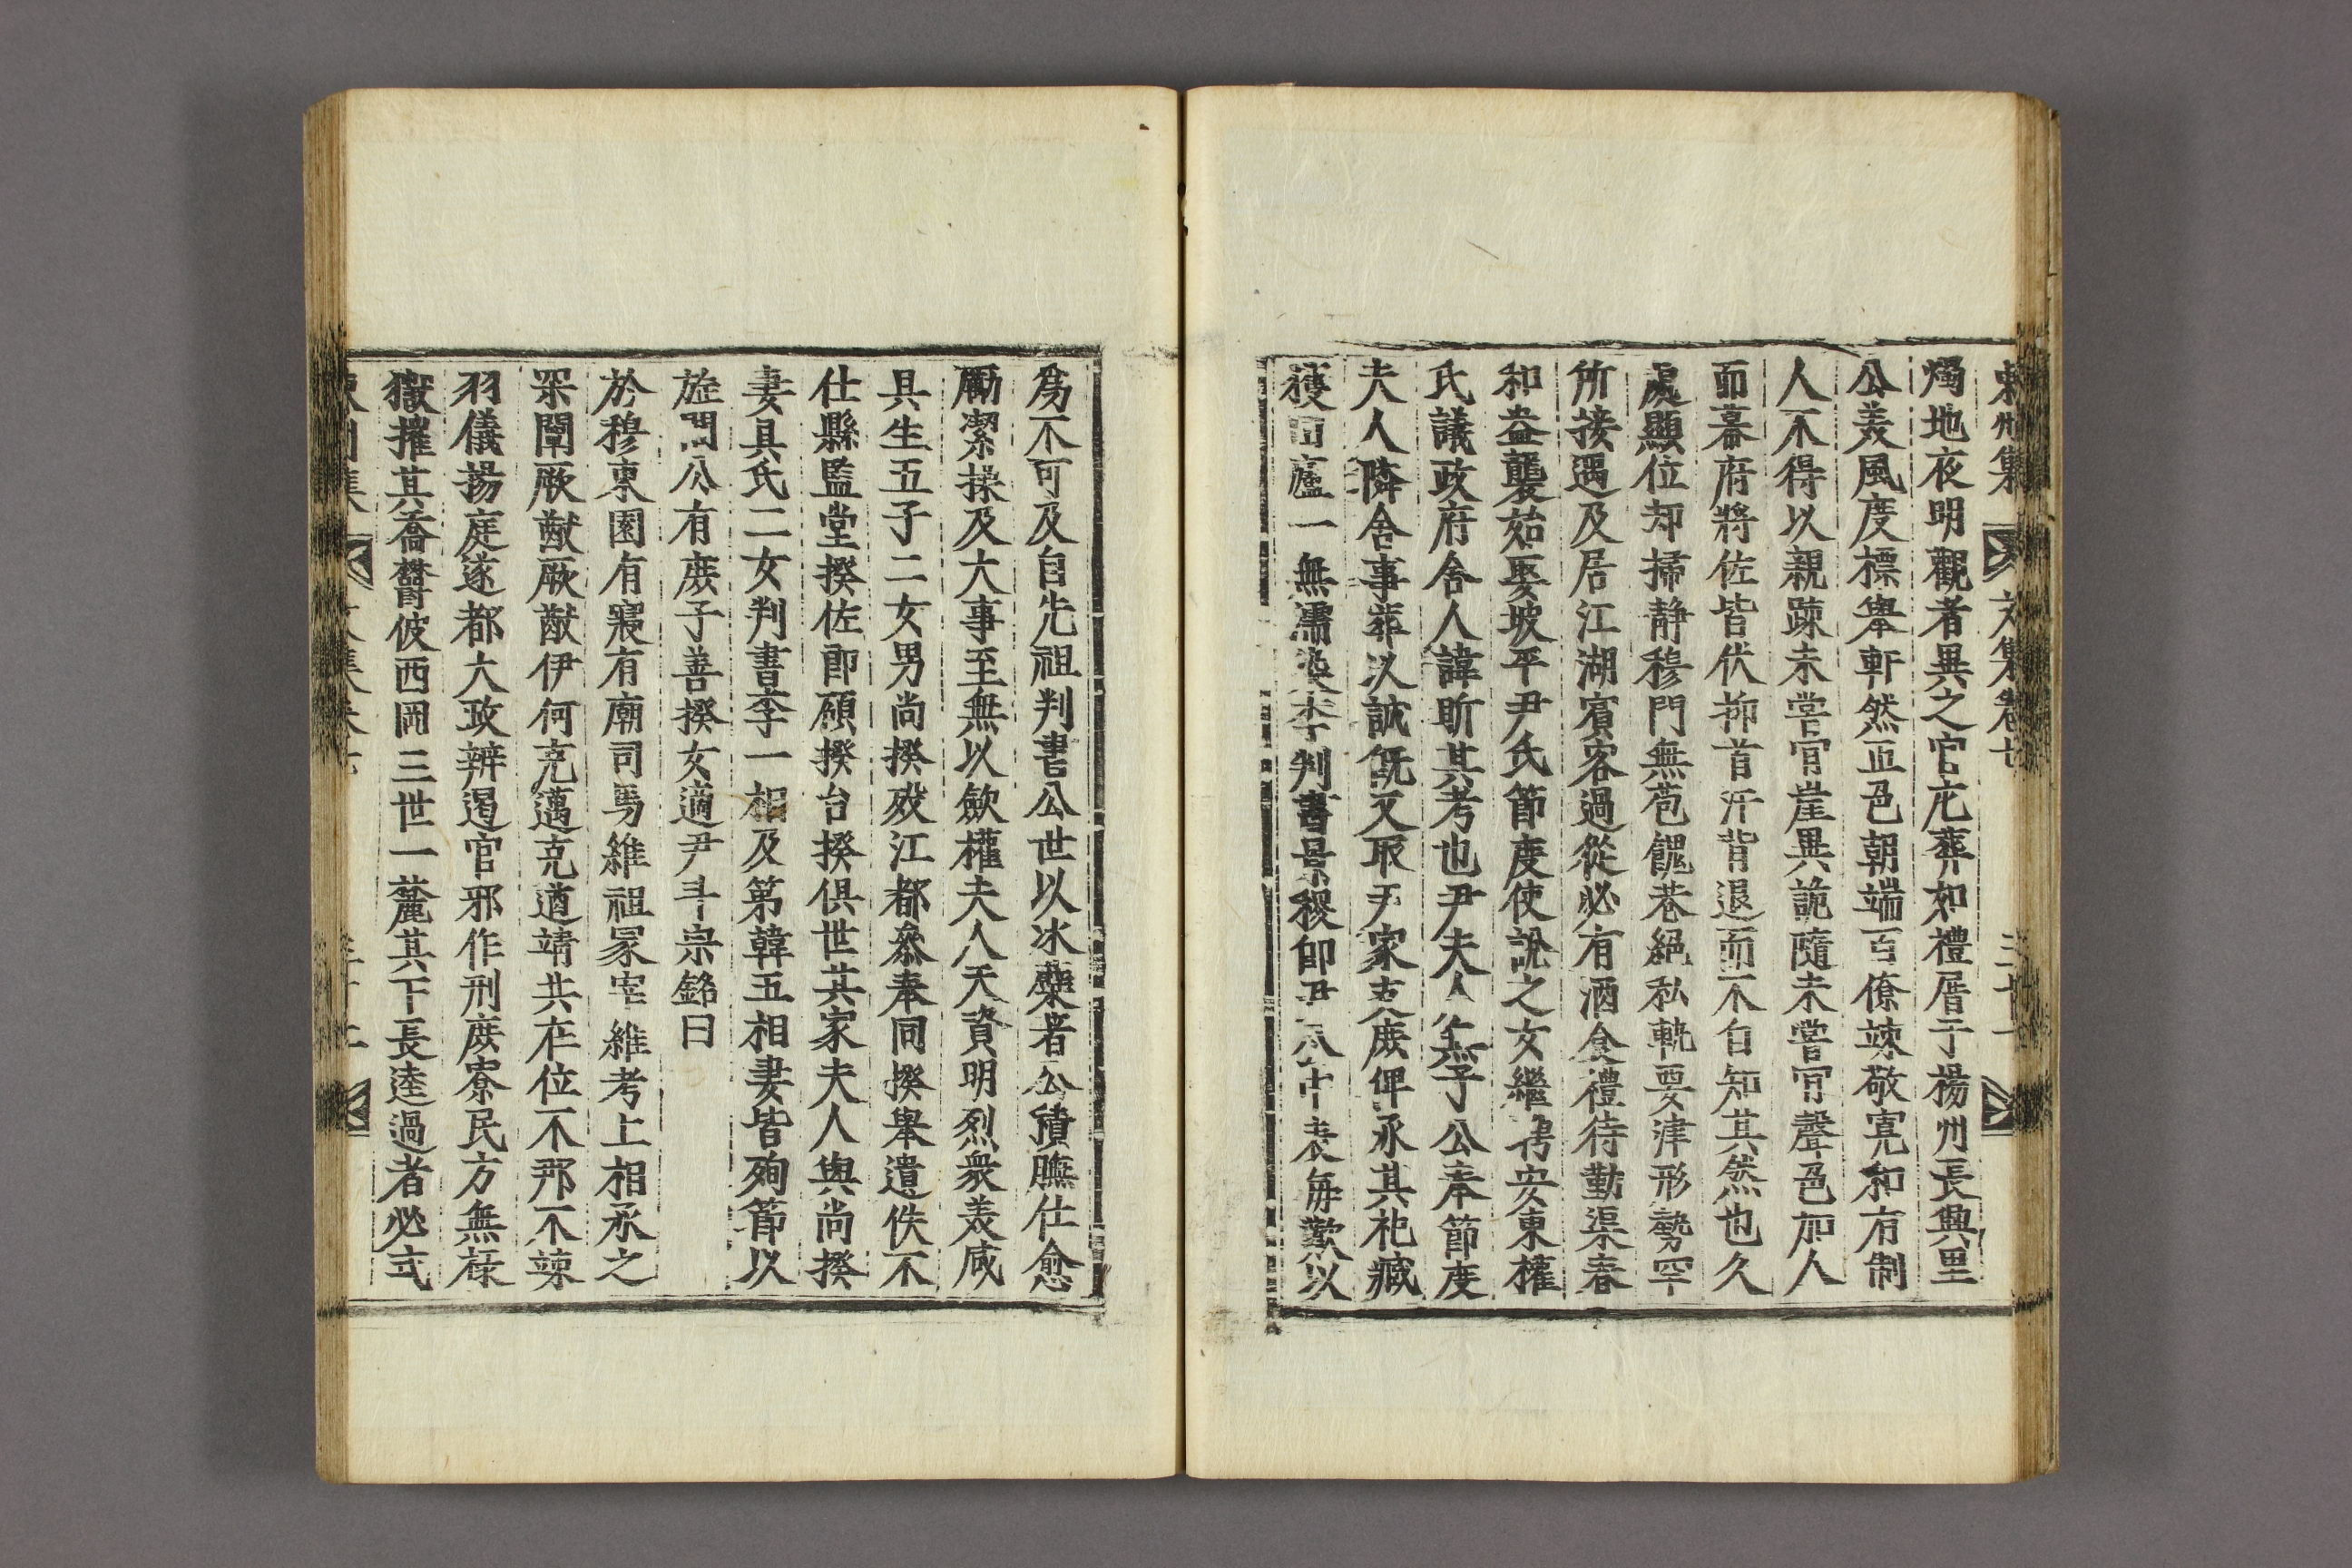 東州集 文集卷廿 三十一
燭地夜明觀者異之官庀葬如禮厝于楊州長興里
公美風度標舉軒然正色朝端百僚竦敬寬和有制
人不得以親踈未嘗官崖異詭隨未嘗官聲色加人
而幕府將佐皆伏抑首汗背退而不自知其然也久
處顯位却掃靜穆門無苞餽巷絕私軌要津形勢罕
所接遇及居江湖賓客過從必有酒食禮待勤渠春
和益襲始娶坡平尹氏節度使說之女繼娉安東權
氏議政府舍人諱昕其考也尹夫人無子公奉節度
夫人隣舍事葬以誠旣又取尹家支庶俾承其祀臧
獲田廬一無濡染李判書景稷卽尹 中表每歎以
爲不可及自先祖判書公世以冰蘗者公積膴仕愈
勵潔操及大事至無以斂權夫人天資明烈衆美咸
具生五子二女男尚揆歿江都叅奉同揆舉遺佚不
仕縣監堂揆佐郎碩揆台揆俱世其家夫人與尚揆
妻具氏二女判書李一相及第韓五相妻皆殉節以
旌閭公有庶子善揆女適尹斗宗銘曰
於穆東園有寢有廟司馬維祖冢宰維考上相承之
罙闡厥猷厥猷伊何克邁克遒靖共在位不那不竦
羽儀揚庭遂都大政辨遏官邪作刑庶寮民方無祿
嶽摧其喬鬱彼西岡三世一麓其下長逵過者必式